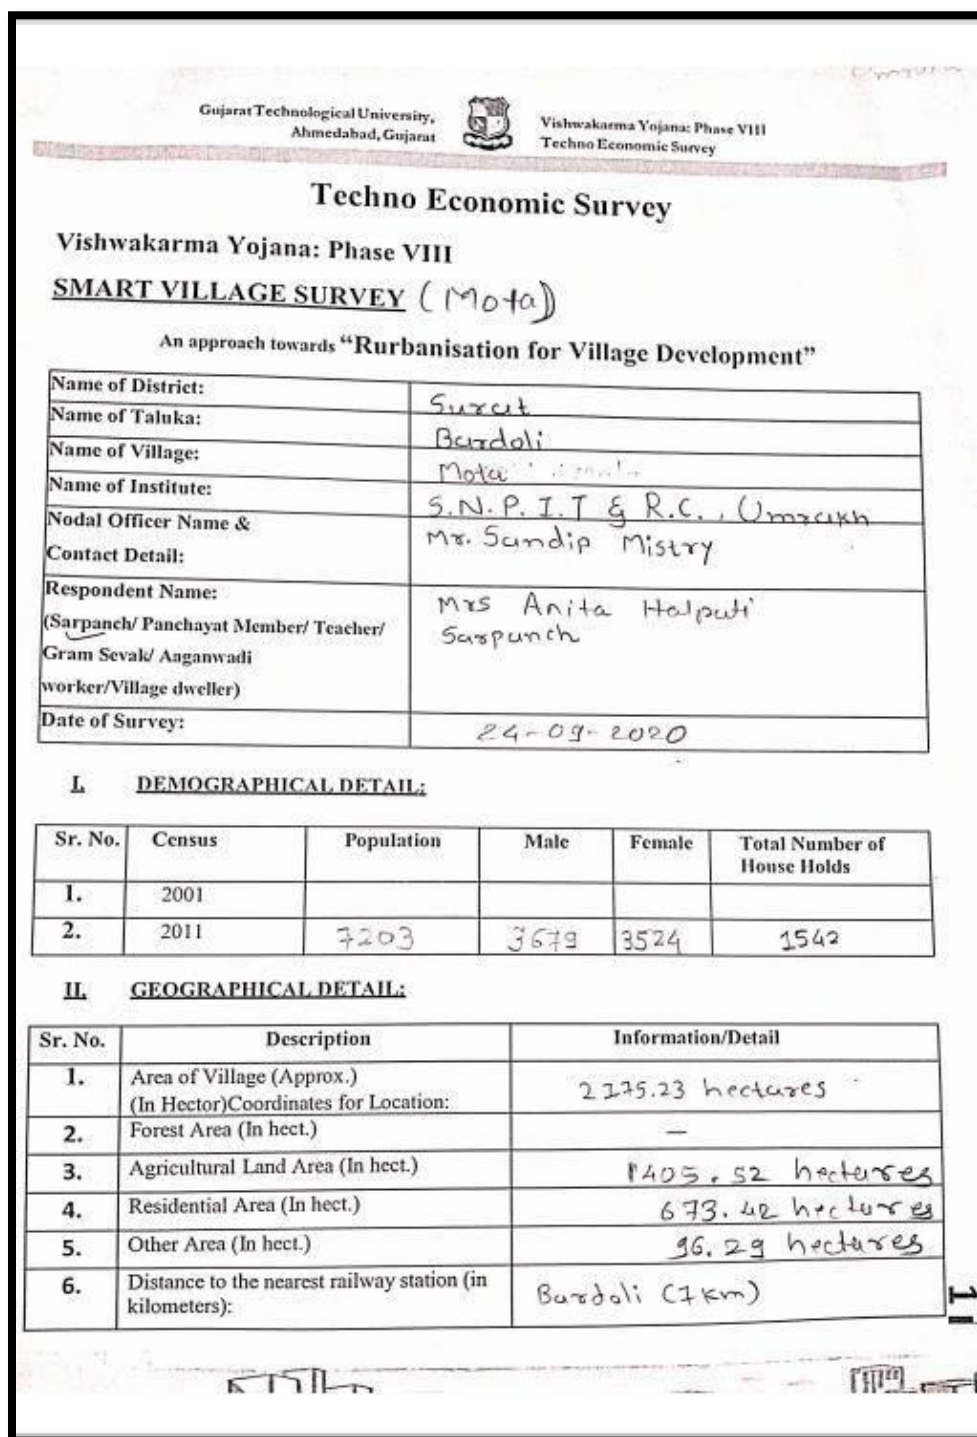 Gujarat Technological University,
Ahmedabad, Gujarat
Vishwakarma Yojana: Phase VIII
Techno Economic Survey
Techno Economic Survey
Vishwakarma Yojana: Phase VIII
SMART VILLAGE SURVEY (Mota)
An approach towards “Rurbanisation for Village Development”
Name of District: Surat
Name of Taluka: Bardoli
Name of Village: Mota
Name of Institute: S.N.P.I.T & R.C., Umrakh
Nodal Officer Name & Mr. Sandip Mistry
Contact Detail:
Respondent Name: Mrs Anita Halpati
(Sarpanch/ Panchayat Member/ Teacher/ Sarpanch
Gram Sevak/ Aaganwadi
worker/Village dweller)
Date of Survey: 24-09-2020
I. DEMOGRAPHICAL DETAIL:
Sr. No. Census Population Male Female Total Number of
House Holds
1. 2001
2. 2011 7203 3679 3524 1542
II. GEOGRAPHICAL DETAIL:
Sr. No. Description Information/Detail
1. Area of Village (Approx.)
(In Hector)Coordinates for Location: 2175.23 hectares
2. Forest Area (In hect.) —
3. Agricultural Land Area (In hect.) 1405.52 hectares
4. Residential Area (In hect.) 673.42 hectares
5. Other Area (In hect.) 96.29 hectares
6. Distance to the nearest railway station (in
kilometers): Bardoli (7km)